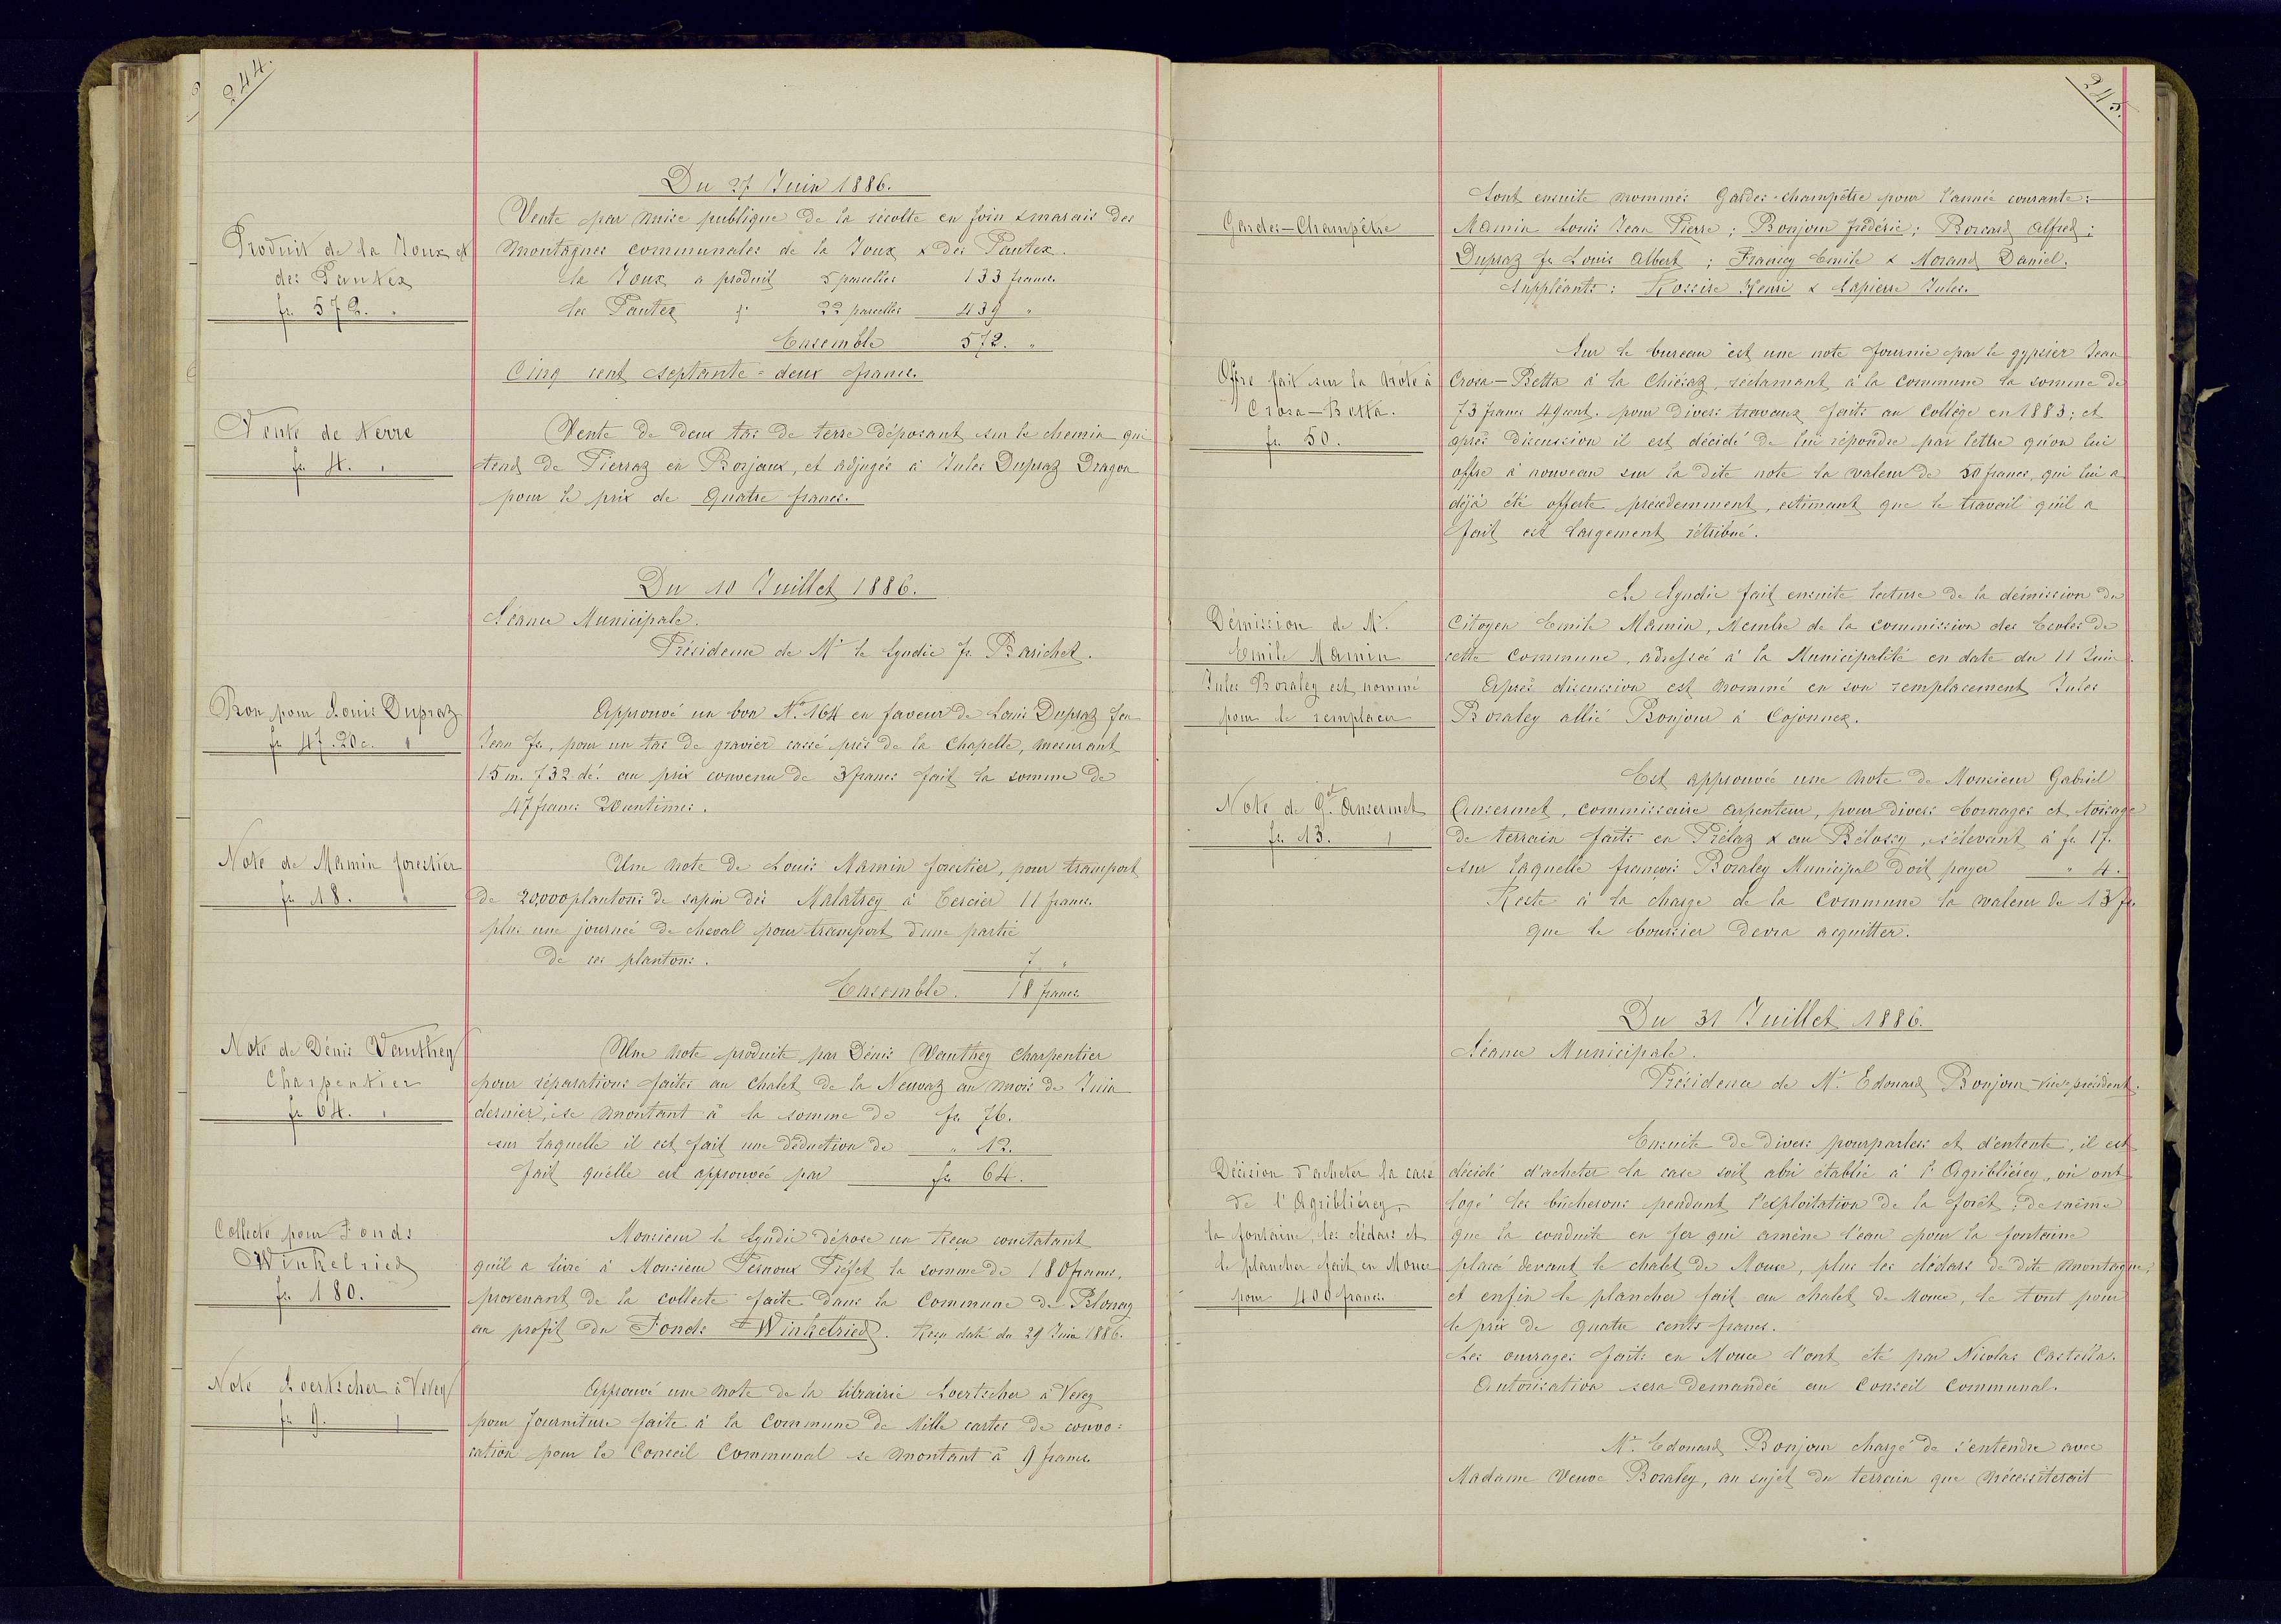 244.
Du 27 Juin 1886.
Produit de la Joux et
des Pautex
fr. 572. "
Vente par mise publique de la récolte en foin & marais des
montagnes communales de la Joux & des Pautex.
La Joux a produit 5 parcelles 133 francs
Les Pautex d° 22 parcelles 439 "
Ensemble 572. "
Cinq cent septante-deux francs.
Vente de terre
fr. 4. "
Vente de deux tas de terre déposant sur le chemin qui
tend de Pierraz en Borjaux, et adjugés à Jules Dupraz Dragon
pour le prix de quatre francs.
Du 10 Juillet 1886.
Séance Municipale.
Présidence de Mr le Syndic fs Barichet.
Bon pour Louis Dupraz
fr 47.20 c. "
Approuvé un bon No 164 en faveur de Louis Dupraz feu
Jean fs, pour un tas de gravier cassé près de la Chapelle, mesurant
15 m. 732 dé. au prix convenu de 3 francs fait la somme de
47 francs 20 centimes.
Note de Mamin forestier
fr 18. "
Une note de Louis Mamin forestier, pour transport
de 20,000 plantons de sapin dès Malatrey à Tercier 11 francs.
plus une journée de cheval pour transport d'une partie
de ces plantons. 7 "
Ensemble. 18 francs
Note de Dénis Vauthey
Charpentier
fr 64. "
Une note produite par Dénis Vauthey Charpentier
pour réparations faites au chalet de la Neuvaz au mois de Juin
dernier, se montant à la somme de fr 76.
sur laquelle il est fait une déduction de " 12.
fait qu'elle est approuvée par fr 64.
Collecte pour Fonds
Winkelried
fr. 180.
Monsieur le Syndic dépose un Reçu constatant
qu'il a livré à Monsieur Pernoux Préfet la somme de 180 francs,
provenant de la collecte faite dans la Commune de Blonay
au profit du Fonds Winkelried. Reçu daté du 29 Juin 1886.
Note Loertscher à Vevey
fr 9. "
Approuvé une note de la librairie Loertscher à Vevey
pour fourniture faite à la Commune de Mille cartes de convo=
cation pour le Conseil Communal se montant à 9 francs
245.
Gardes-Champêtre
Sont ensuite nommés Gardes-champêtre pour l'année courante:
Mamin Louis Jean Pierre; Bonjour frédéric; Borcard Alfred;
Dupraz fs Louis Albert; Francey Emile & Morand Daniel.
Suppléants: Rossire Henri & Lapierre Jules.
Offre fait sur la note à
Crosa-Betta.
fr. 50.
Sur le bureau est une note fournie par le gypsier Jean
Crosa-Betta à la Chiésaz, réclamant à la Commune la somme de
73 francs 49 cent. pour divers travaux faits au Collège en 1883; et
après discussion il est décidé de lui répondre par lettre qu'on lui
offre à nouveau sur la dite note la valeur de 50 francs, qui lui a
déjà été offerte précédemment, estimant que le travail qu'il a
fait est largement rétribué.
Démission de Mr.
Emile Mamin
Jules Boraley est nommé
pour le remplacer
Le Syndic fait ensuite lecture de la démission du
Citoyen Emile Mamin, Membre de la commission des Ecoles de
cette Commune, adressée à la Municipalité en date du 11 Juin.
Après discussion est nommé en son remplacement Jules
Boraley allié Bonjour à Cojonnex.
Note de Gel Ansermet
fr. 13. "
Est approuvée une note de Monsieur Gabriel
Ansermet, commissaire arpenteur, pour divers bornages et toisage
de terrain faits en Prélaz & au Bélossy, s'élevant à fr 17.
sur laquelle françois Boraley Municipal doit payer " 4.
Reste à la charge de la Commune la valeur de 13 fr.
que le boursier devra acquitter.
Du 31 Juillet 1886.
Séance Municipale.
Présidence de Mr Edouard Bonjour Vice président.
Décision d'acheter la case
de l'Agribliérey
la fontaine, les clédars et
le plancher fait en Mouce
pour 400 francs
Ensuite de divers pourparlers et d'entente, il est
décidé d'acheter la case soit abri établie à l'Agribliérey, où ont
logé les bûcherons pendant l'exploitation de la forêt; de même
que la conduite en fer qui amène l'eau pour la fontaine
placé devant le chalet de Mouce, plus les clédars de dite montagne,
et enfin le plancher fait au chalet de Mouce, le tout pour
le prix de quatre cents francs.
Les ouvrages faits en Mouce l'ont été par Nicolas Castella.
Autorisation sera demandée au Conseil Communal.
Mr. Edouard Bonjour chargé de s'entendre avec
Madame veuve Boraley, au sujet du terrain que nécessiterait